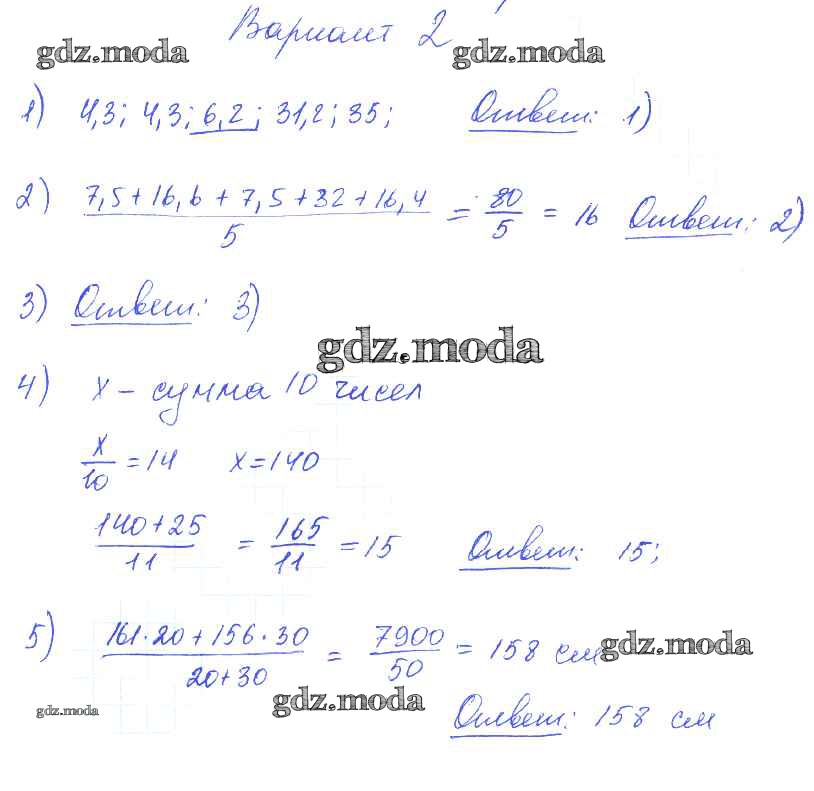 Вариант 2
gdz.moda gdz.moda
1) 4,3; 4,3; 6,2; 31,2; 35; Ответ: 1)
2) (7,5 + 16,6 + 7,5 + 32 + 16,4)/5 = 80/5 = 16 Ответ: 2)
3) Ответ: 3)
gdz.moda
4) x – сумма 10 чисел
x/10 = 14 x = 140
(140 + 25)/11 = 165/11 = 15 Ответ: 15;
5) (161 · 20 + 156 · 30)/(20 + 30) = 7900/50 = 158 см gdz.moda
gdz.moda gdz.moda
Ответ: 158 см